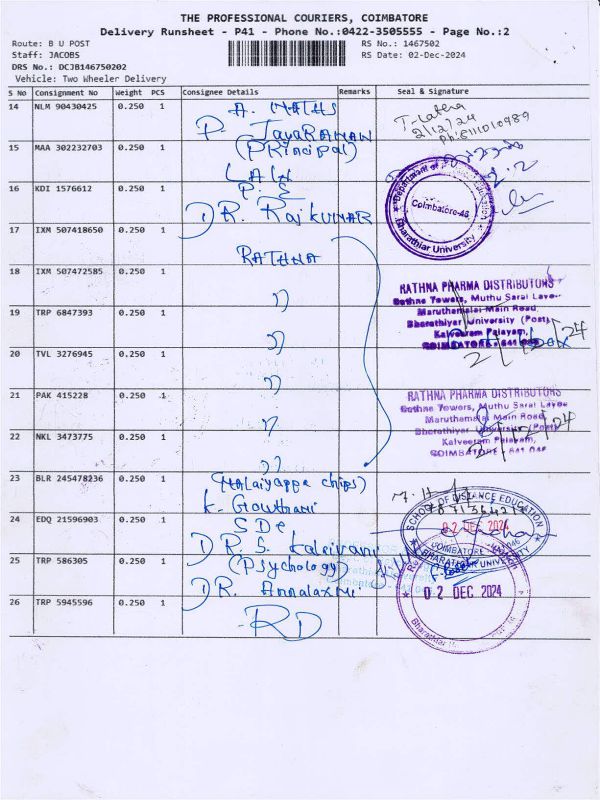 THE PROFESSIONAL COURIERS, COIMBATORE
Delivery Runsheet - P41 - Phone No.:0422-3505555 - Page No.:2
Route: B U POST
RS No.: 1467502
Staff: JACOBS
RS Date: 02-Dec-2024
DRS No.: DCJB146750202
Vehicle: Two Wheeler Delivery
S No Consignment No Weight PCS Consignee Details Remarks Seal & Signature
14 NLM 90430425 0.250 1 A. MATHS
P. JayaRAMAN
2/12/24
15 MAA 302232703 0.250 1 (PRincipal)
LAW
16 KDI 1576612 0.250 1 P. E
DR. RajKUMAR
Coimbatore-46
Bharathiar University
17 IXM 507418650 0.250 1 RATHNA
18 IXM 507472585 0.250 1 "
RATHNA PHARMA DISTRIBUTORS
Rathna Towers, Muthu Sarai Layo--
Maruthamalai Main Road,
Bharathiyar University (Post),
Kalveeram Palayam,
COIMBATORE - 641 046
2/12/24
19 TRP 6847393 0.250 1 "
20 TVL 3276945 0.250 1 "
21 PAK 415228 0.250 1 "
RATHNA PHARMA DISTRIBUTORS
Rathna Towers, Muthu Sarai Layo--
Maruthamalai Main Road,
Bharathiyar University (Post),
Kalveeram Palayam,
COIMBATORE - 641 046
2/12/24
22 NKL 3473775 0.250 1 "
23 BLR 245478236 0.250 1 (Malaiyappa chips)
K. Gowthami
24 EDQ 21596903 0.250 1 SDE
DR. S. Kalaivani
SCHOOL OF DISTANCE EDUCATION
02 DEC 2024
COIMBATORE - 641 046
BHARATHIAR UNIVERSITY
25 TRP 586305 0.250 1 (Psychology)
DR. Annalaxmi
26 TRP 5945596 0.250 1 RD
02 DEC 2024